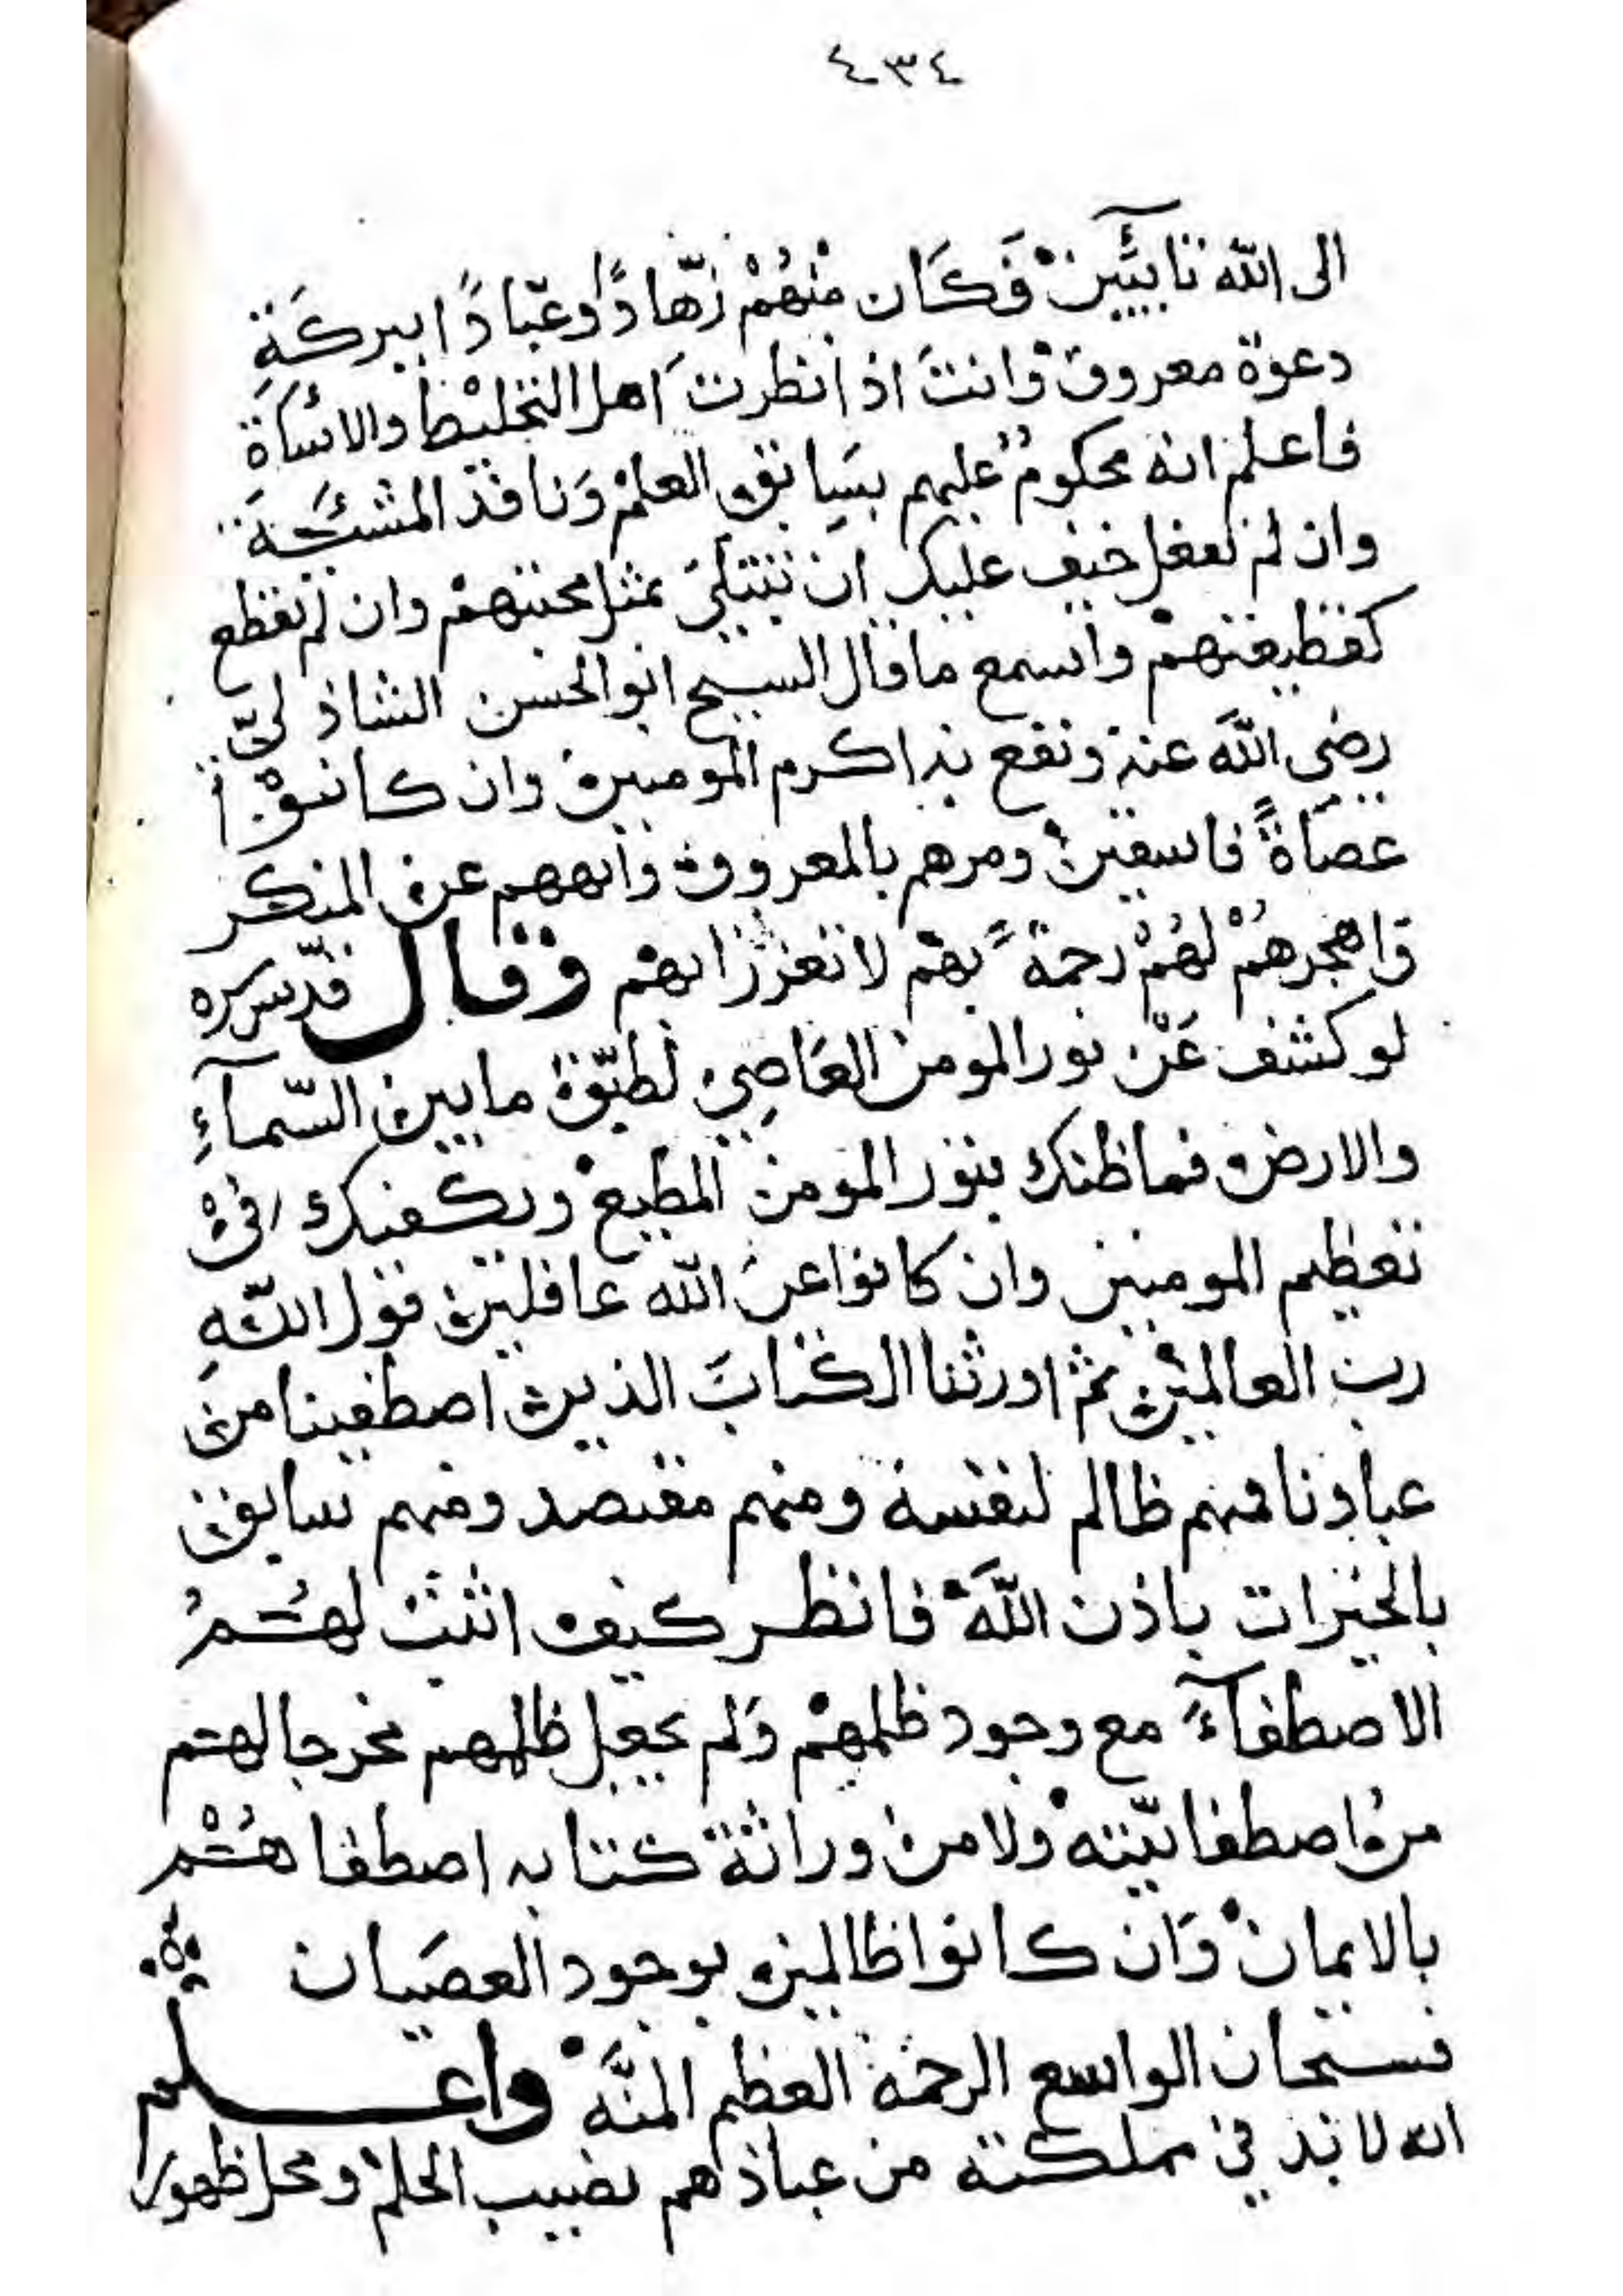 ٤٣٤
الى الله تايبين فَكَان مِنْهُمْ زُهّادًا وعُبّادًا ببركَةِ
دعوة معروف وانتَ اذا نظرت اهل التخليط والاسَاءة
فاعلم انه محكومٌ عليهم بسَابق العلم وَنافذ المشيَّة
وان لم تفعل خيف عليك ان تبتلى بمثل محنتهمْ وان تقطع
كقطيعتهمْ واسمع ما قال الشيخ ابو الحسن الشاذلىّ
رضي الله عنه ونفع به اكرم المومنين وان كانوْا
عصَاةً فاسقين ومرهم بالمعروف وانههم عن المنكر
واهجرهُمْ لهُمْ رحمةً بهمْ لا تعززا بهمْ وقال قدّس سره
لو كشف عَنْ نور المومن العَاصِي لطبّق ما بين السّمآءِ
والارض فما ظنك بنور المومن المطيع ويكفيك فى
تعظيم المومنين وان كانوا عن الله غافلين قول اللهِ
رب العالمين ثم اورثنا الكتابَ الذين اصطفينا من
عبادنا فمنهم ظالم لنفسه ومنهم مقتصد ومنهم سابق
بالخيرات باذن اللهَ فانظر كيف اثبت لهُمُ
الاصطفآءَ مع وجود ظلمهمْ وَلم يجعل ظلمهم مخرجا لهم
من اصطفائيّته ولا من وراثة كتابه اصطفاهُمْ
بالايمان وَان كانوا ظالمين بوجود العصَيان
فسبحان الواسع الرحمة العظيم المنَّه واعلم
انه لا بد في مملكته من عباد هم نصيب الحلم ومحل ظهور